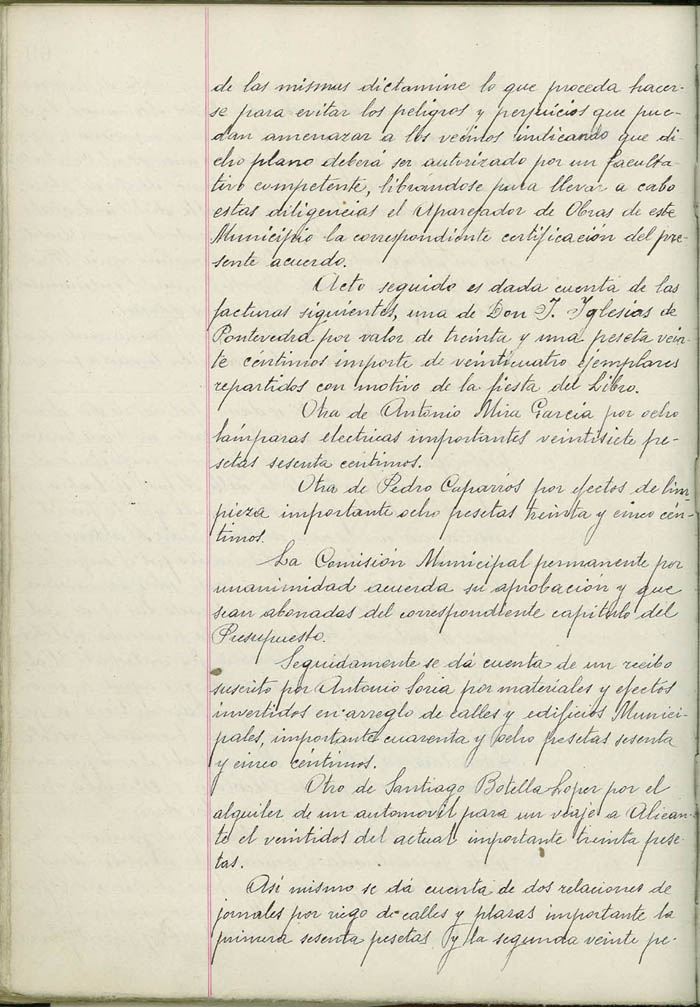 de las mismas dictamine lo que proceda hacer-
se para evitar los peligros y perjuicios que pue-
dan amenazar a los vecinos indicando que di-
cho plano deberá ser autorizado por un faculta-
tivo competente, librándose para llevar a cabo
estas diligencias el Aparejador de Obras de este
Municipio la correspondiente certificación del pre-
sente acuerdo.
Acto seguido es dada cuenta de las
facturas siguientes, una de Don J. Yglesias de
Pontevedra por valor de treinta y una peseta vein-
te céntimos importe de veinticuatro ejemplares
repartidos con motivo de la fiesta del Libro.
Otra de Antonio Mira García por ocho
lámparas electricas importantes veintisiete pe-
setas sesenta centimos.
Otra de Pedro Caparrós por efectos de lim-
pieza importante ocho pesetas treinta y cinco cén-
timos.
La Comisión Municipal permanente por
unanimidad acuerda su aprobación y que
sean abonadas del correspondiente capitulo del
Presupuesto.
Seguidamente se dá cuenta de un recibo
suscrito por Antonio Soria por materiales y efectos
invertidos en arreglo de calles y edificios Munici-
pales, importante cuarenta y ocho pesetas sesenta
y cinco céntimos.
Otro de Santiago Botella Loper por el
alquiler de un automovil para un viaje a Alican-
te el veintidos del actual importante treinta pese-
tas.
Asi mismo se dá cuenta de dos relaciones de
jornales por riego de calles y plazas importante la
primera sesenta pesetas y la segunda veinte pe-